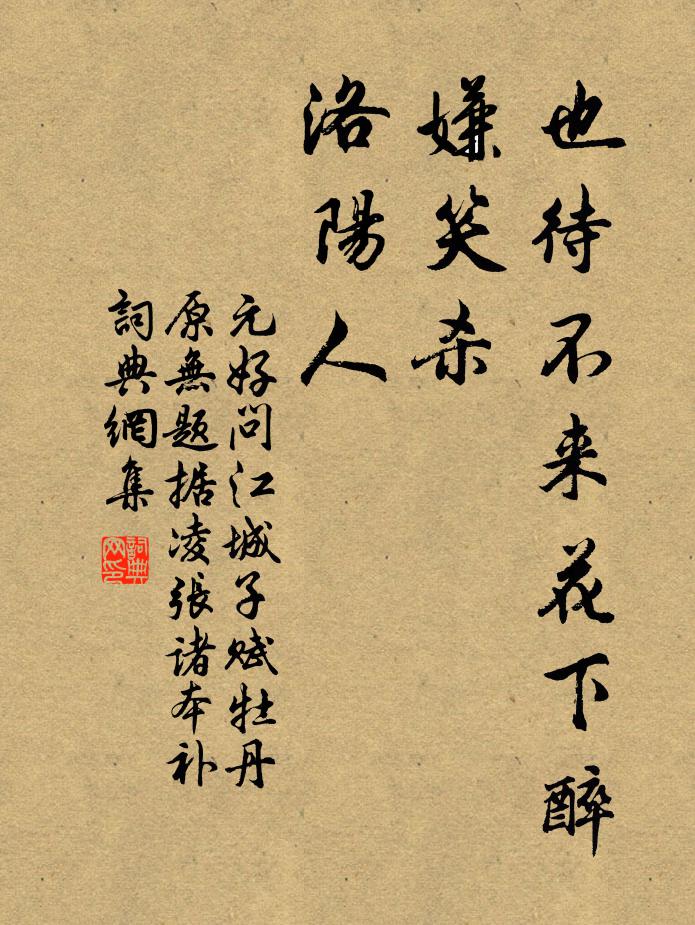 也待不来花下醉
嫌笑杀
洛陽人
元好问江城子赋牡丹
原無题据凌張诸本补
詞典網集
詞典
网印